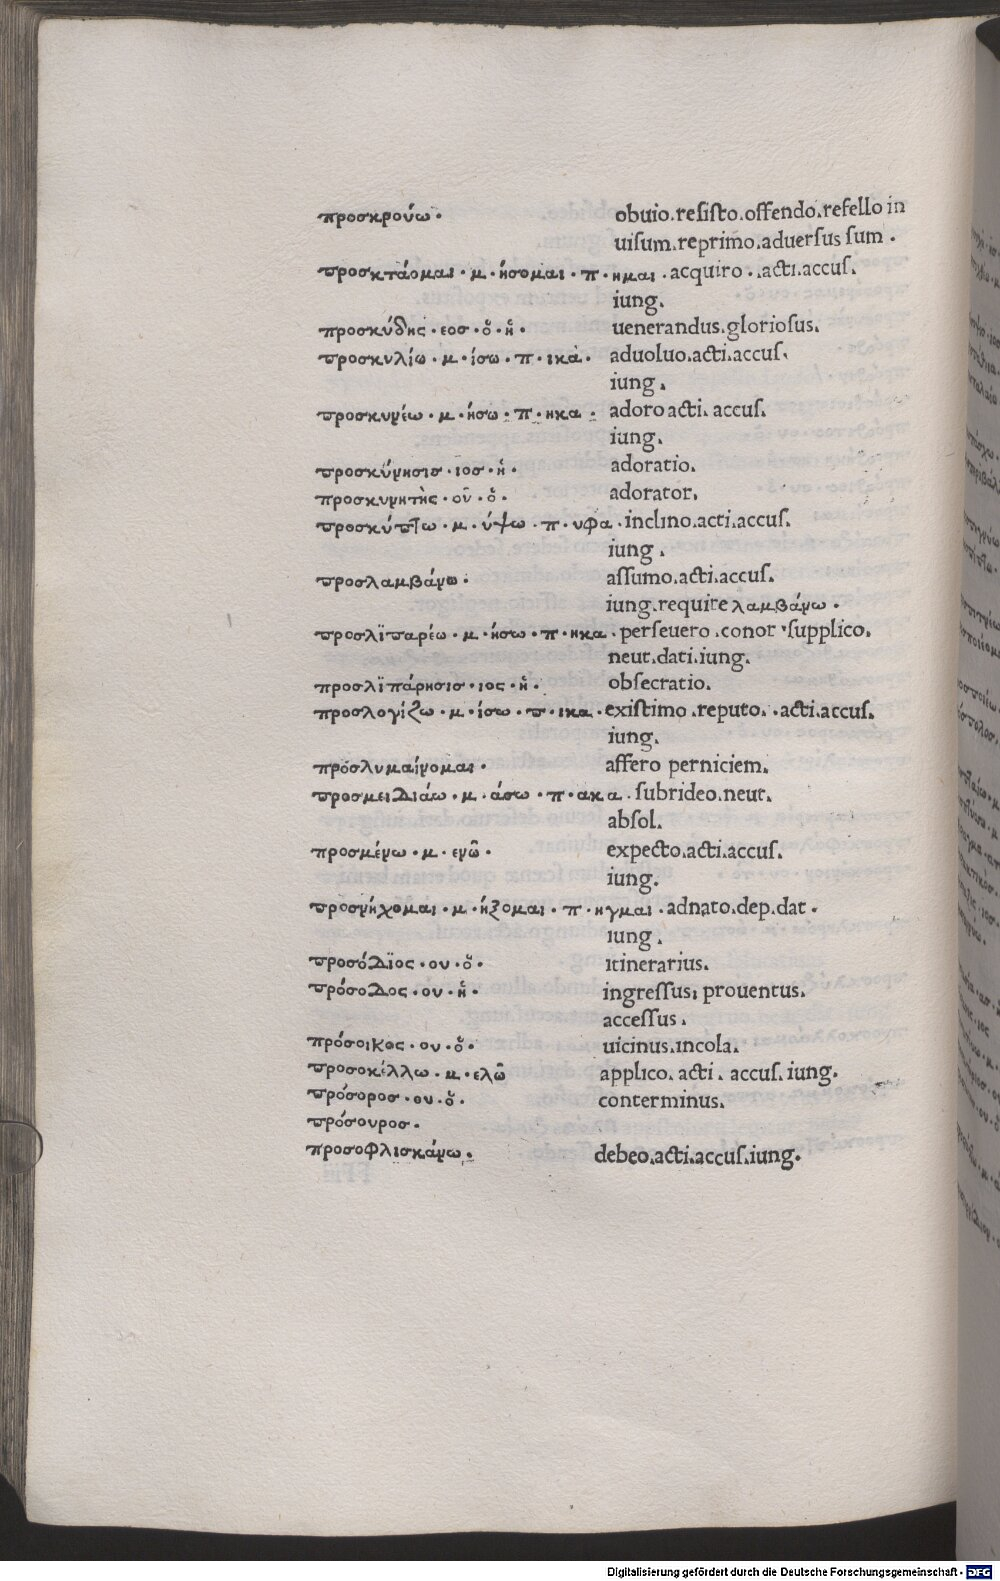 προσκρούω· obuio.reſiſto.offendo.refello in
uiſum.reprimo.aduerſus ſum.
προσκτάομαι·μ·ήσομαι·π·ημαι·acquiro.acti.accuſ.
iung.
προσκύδης·εοσ·ὁ·ἡ· uenerandus.glorioſus.
προσκυλίω·μ·ίσω·π·ικα· aduoluo.acti.accuſ.
iung.
προσκυνέω·μ·ήσω·π·ηκα· adoro acti.accuſ.
iung.
προσκύνησισ·ιοσ·ἡ· adoratio.
προσκυνητὴς·οῦ·ὁ· adorator.
προσκύπτω·μ·ύψω·π·υφα·inclino.acti.accuſ.
iung.
προσλαμβάνω· aſſumo.acti.accuſ.
iung.require λαμβάνω.
προσλϊπαρέω·μ·ήσω·π·ηκα·perſeuero.conor.ſupplico.
neut.dati.iung.
προσλϊπάρησισ·ιος·ἡ· obſecratio.
προσλογίζω·μ·ίσω·π·ικα·exiſtimo.reputo.acti.accuſ.
iung.
πρόσλυμαίνομαι· affero perniciem.
προσμειδιάω·μ·άσω·π·ακα·ſubrideo.neut.
abſol.
προσμένω·μ·ενῶ· expecto.acti.accuſ.
iung.
προσνήχομαι·μ·ήξομαι·π·ηγμαι·adnato.dep.dat.
iung.
προσόδϊος·ου·ὁ· itinerarius.
πρόσοδος·ου·ἡ· ingreſſus, prouentus.
acceſſus.
πρόσοικος·ου·ὁ· uicinus.incola.
προσοκέλλω·μ·ελῶ applico.acti.accuſ.iung.
πρόσοροσ·ου·ὁ· conterminus.
πρόσουροσ·
προσοφλισκάνω· debeo.acti.accuſ.iung.
Digitalisierung gefördert durch die Deutsche Forschungsgemeinschaft - DFG